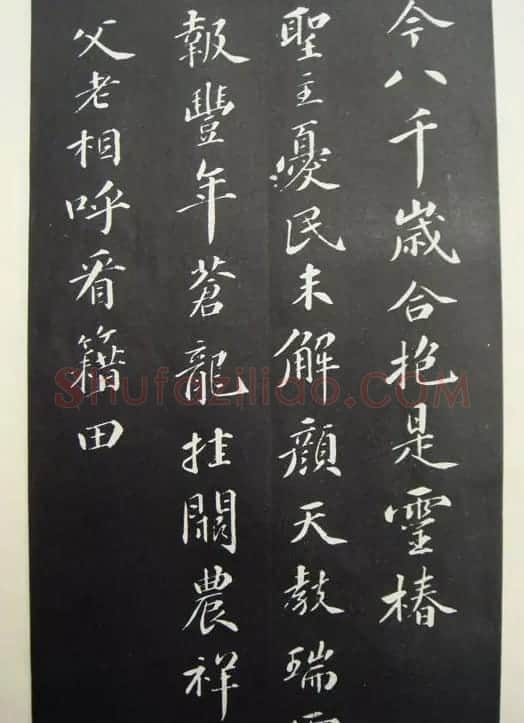 今八千歳合抱是靈椿
聖主憂民未解顔天教瑞
報豐年蒼龍挂闕農祥
父老相呼看籍田
Shufaziliao.COM